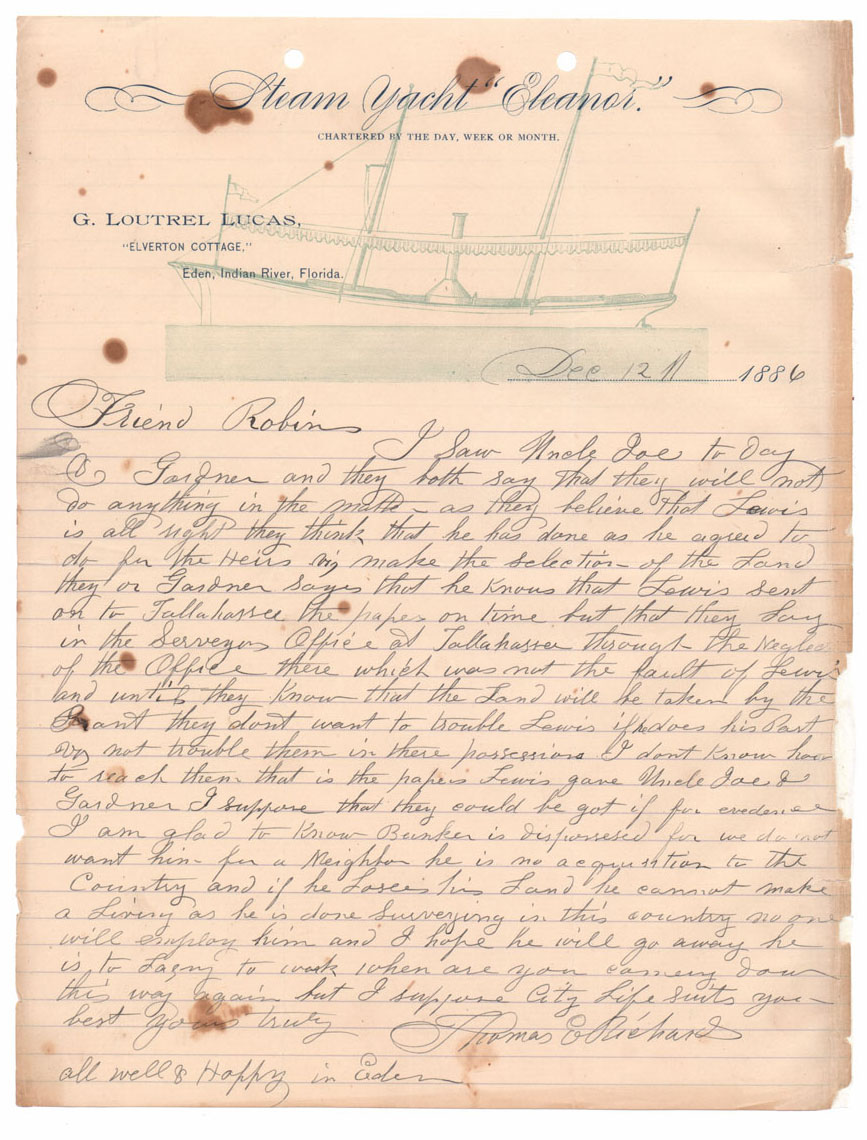 Steam Yacht "Eleanor."
CHARTERED BY THE DAY, WEEK OR MONTH.
G. LOUTREL LUCAS,
"ELVERTON COTTAGE,"
Eden, Indian River, Florida.
Dec 12 1886
Friend Robins
I Saw Uncle Joe to day
& Gardner and they both say that they will not
do anything in the matter as they believe that Lewis
is all right they think that he has done as he agreed to
do for the Heirs viz make the selection of the Land
they or Gardner says that he Knows that Lewis sent
on to Tallahassee the papers on time but that they Lay
in the Serveyors Office at Tallahassee through the Neglect
of the Office there which was not the fault of Lewis
and until they Know that the Land will be taken by the
Grant they dont want to trouble Lewis if he does his Part
viz not trouble them in there possessions I dont Know how
to reach them that is the papers Lewis gave Uncle Joe &
Gardner I suppose that they could be got if for evedence
I am glad to Know Bunker is dispossesed for we do not
want him for a Neighbor he is no acquisition to the
Country and if he Loses his Land he cannot make
a Living as he is done Surveying in this country no one
will employ him and I hope he will go away he
is to Lazy to work when are you comeing down
this way again but I suppose City Life suits you
best yours truly Thomas E Richards
all well & Happy in Eden